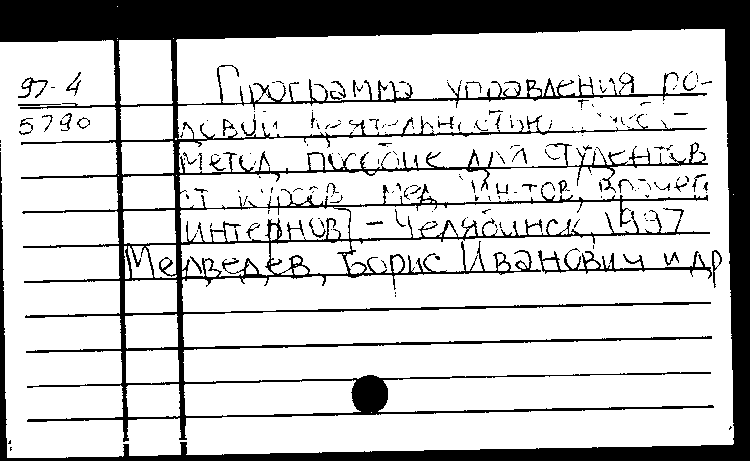 97-4
5790
Программа управления ро-
левой деятельностью
метод. пособие для студентов
ст. курсов мед. ин-тов, врачей
интернов]. - Челябинск, 1997
Медведев, Борис Иванович и др